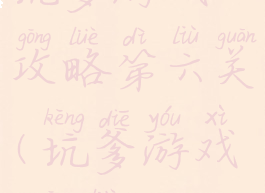 gōng lüè dì liù guān
攻略第六关
kēng diē yóu xì
(坑爹游戏